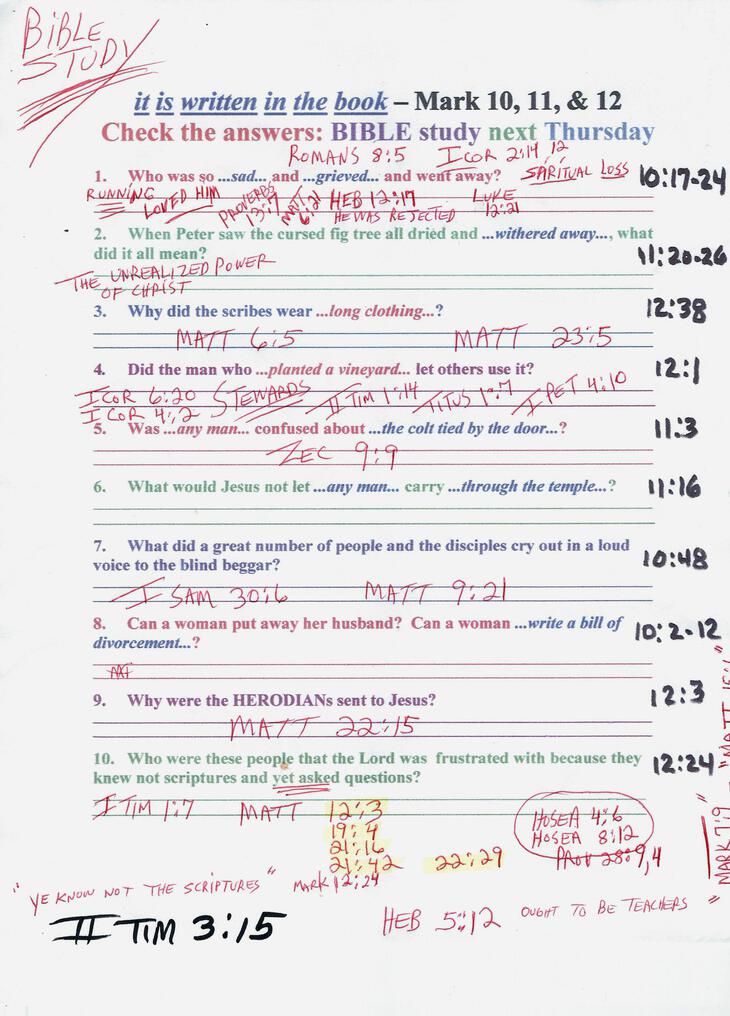 BIBLE
STUDY
it is written in the book – Mark 10, 11, & 12
Check the answers: BIBLE study next Thursday
ROMANS 8:5 I COR 2:14, 12
1. Who was so ...sad... and ...grieved... and went away? SPIRITUAL LOSS 10:17-24
RUNNING LOVED HIM PROVERBS 13:7 MATT 6:21 HEB 12:17 LUKE 12:21
HE WAS REJECTED
2. When Peter saw the cursed fig tree all dried and ...withered away..., what
did it all mean? 11:20-26
THE UNREALIZED POWER
OF CHRIST
3. Why did the scribes wear ...long clothing...? 12:38
MATT 6:5 MATT 23:5
4. Did the man who ...planted a vineyard... let others use it? 12:1
I COR 6:20 STEWARDS II TIM 1:14 TITUS 1:7 I PET 4:10
I COR 4:1,2
5. Was ...any man... confused about ...the colt tied by the door...? 11:3
ZEC 9:9
6. What would Jesus not let ...any man... carry ...through the temple...? 11:16
7. What did a great number of people and the disciples cry out in a loud
voice to the blind beggar? 10:48
I SAM 30:6 MATT 9:21
8. Can a woman put away her husband? Can a woman ...write a bill of
divorcement...? 10:2-12
9. Why were the HERODIANs sent to Jesus? 12:3
MATT 22:15
10. Who were these people that the Lord was frustrated with because they
knew not scriptures and yet asked questions? 12:24
I TIM 1:7 MATT 12:3
19:4
21:16
21:42 22:29
MARK 12:24
HOSEA 4:6
HOSEA 8:12
PROV 28:9,4
MARK 7:9
"YE KNOW NOT THE SCRIPTURES"
II TIM 3:15
HEB 5:12 OUGHT TO BE TEACHERS "